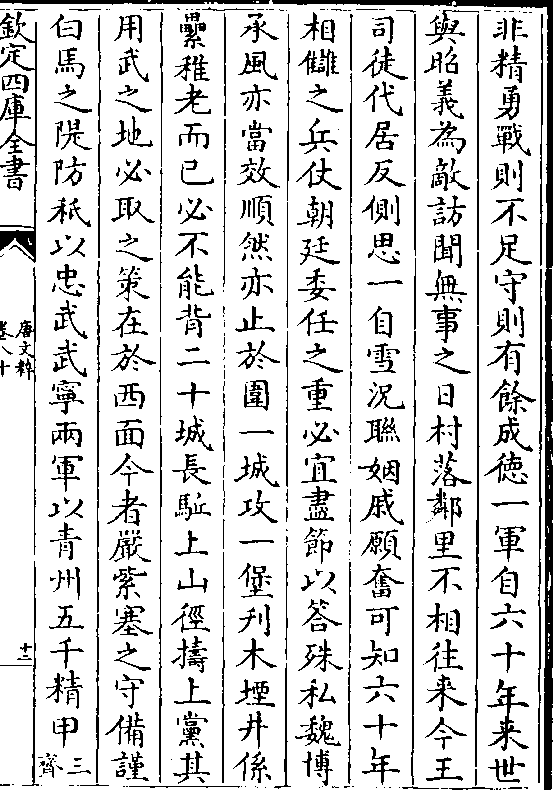 非精勇戰則不足守則有餘成徳一軍自六十年来世
與昭義為敵訪聞無事之日村落鄰里不相往来今王
司徒代居反側思一自雪況聯姻戚願奮可知六十年
相讎之兵仗朝廷委任之重必宜盡節以答殊私魏博
承風亦當效順然亦止於圍一城攻一堡刋木堙井係
纍稚老而已必不能背二十城長駈上山徑擣上黨其
用武之地必取之策在於西面今者嚴紫塞之守備謹
白馬之隄防秖以忠武武寧兩軍以青州五千精甲三齊
欽定四庫全書
唐文粹
卷八十
十三